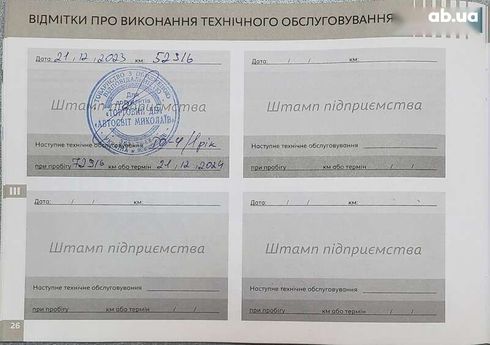 ab.ua
ВІДМІТКИ ПРО ВИКОНАННЯ ТЕХНІЧНОГО ОБСЛУГОВУВАННЯ
Дата: 21, 12, 2023 км: 52316
Штамп підприємства
Для документів
«ТОРГОВИЙ ДІМ
«АВТОСВІТ МИКОЛАЇВ»
Наступне технічне обслуговування ТО-4/1 рік
при пробігу 72316 км або термін 21, 12, 2024
Дата: / / км:
Штамп підприємства
Наступне технічне обслуговування
при пробігу км або термін / /
III
Дата: / / км:
Штамп підприємства
Наступне технічне обслуговування
при пробігу км або термін / /
Дата: / / км:
Штамп підприємства
Наступне технічне обслуговування
при пробігу км або термін / /
26